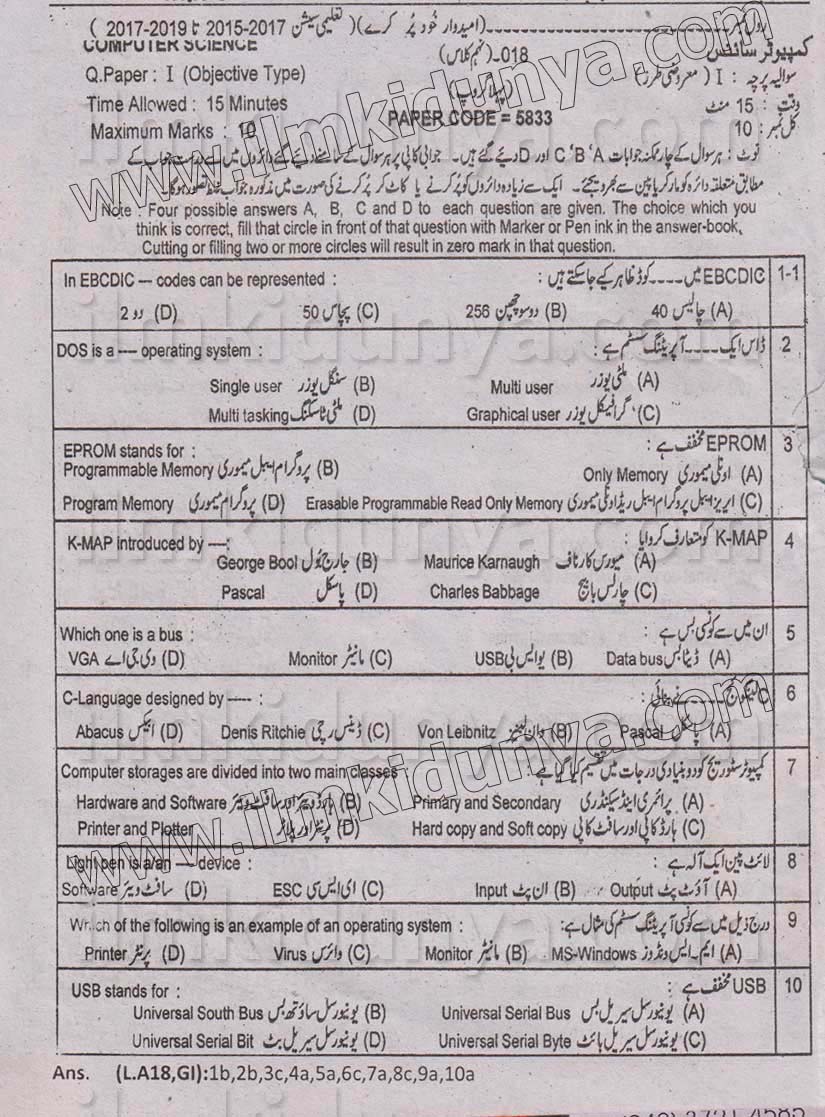 رول نمبر ---------- (امیدوار خود پُر کرے) (تعلیمی سیشن 2015-2017 تا 2017-2019 )
COMPUTER SCIENCE 018-(نہم کلاس) کمپیوٹر سائنس
Q.Paper : I (Objective Type) سوالیہ پرچہ : I (معروضی طرز)
(پہلا گروپ)
Time Allowed : 15 Minutes وقت : 15 منٹ
PAPER CODE = 5833
Maximum Marks : 10 کل نمبر : 10
نوٹ : ہر سوال کے چار ممکنہ جوابات C ' B ' A اور D دئیے گئے ہیں۔ جوابی کاپی پر ہر سوال کے سامنے دئیے گئے دائروں میں سے درست جواب کے
مطابق متعلقہ دائرہ کو مارکر یا پین سے بھر دیجئے۔ ایک سے زیادہ دائروں کو پُر کرنے یا کاٹ کر پُر کرنے کی صورت میں مذکورہ جواب غلط تصور ہوگا۔
Note : Four possible answers A, B, C and D to each question are given. The choice which you
think is correct, fill that circle in front of that question with Marker or Pen ink in the answer-book,
Cutting or filling two or more circles will result in zero mark in that question.
In EBCDIC --- codes can be represented : EBCDIC میں ---- کوڈ ظاہر کیے جا سکتے ہیں : 1-1
(A) چالیس 40 (B) دو سو چھپن 256 (C) پچاس 50 (D) دو 2
DOS is a ---- operating system : ڈاس ایک ---- آپریٹنگ سسٹم ہے : 2
(A) ملٹی یوزر Multi user (B) سنگل یوزر Single user
(C) گرافیکل یوزر Graphical user (D) ملٹی ٹاسکنگ Multi tasking
EPROM stands for : EPROM مخفف ہے : 3
(A) اونلی میموری Only Memory (B) پروگرام ایبل میموری Programmable Memory
(C) ایریزایبل پروگرام ایبل ریڈ اونلی میموری Erasable Programmable Read Only Memory (D) پروگرام میموری Program Memory
K-MAP introduced by ---: K-MAP کو متعارف کروایا : 4
(A) میورس کارناف Maurice Karnaugh (B) جارج بُول George Bool
(C) چارلس بابیج Charles Babbage (D) پاسکل Pascal
Which one is a bus : ان میں سے کونسی بس ہے : 5
(A) ڈیٹا بس Data bus (B) یو ایس بی USB (C) مانیٹر Monitor (D) وی جی اے VGA
C-Language designed by ----- : C لینگوئج ---- نے بنائی : 6
(A) پاسکل Pascal (B) وان لیبنیز Von Leibnitz (C) ڈینس رچی Denis Ritchie (D) ابیکس Abacus
Computer storages are divided into two main classes کمپیوٹر سٹوریج کو دو بنیادی درجات میں تقسیم کیا گیا ہے : 7
(A) پرائمری اینڈ سیکنڈری Primary and Secondary (B) ہارڈ ویئر اور سافٹ ویئر Hardware and Software
(C) ہارڈ کاپی اور سافٹ کاپی Hard copy and Soft copy (D) پرنٹر اور پلاٹر Printer and Plotter
Light pen is a/an --- device : لائٹ پین ایک آلہ ہے : 8
(A) آؤٹ پٹ Output (B) ان پٹ Input (C) ای ایس سی ESC (D) سافٹ ویئر Software
Which of the following is an example of an operating system : درج ذیل میں سے کونسی آپریٹنگ سسٹم کی مثال ہے: 9
(A) ایم۔ایس ونڈوز MS-Windows (B) مانیٹر Monitor (C) وائرس Virus (D) پرنٹر Printer
USB stands for : USB مخفف ہے : 10
(A) یونیورسل سیریل بس Universal Serial Bus (B) یونیورسل ساؤتھ بس Universal South Bus
(C) یونیورسل سیریل بائٹ Universal Serial Byte (D) یونیورسل سیریل بٹ Universal Serial Bit
Ans. (L.A18,GI):1b,2b,3c,4a,5a,6c,7a,8c,9a,10a
www.ilmkidunya.com
www.ilmkidunya.com